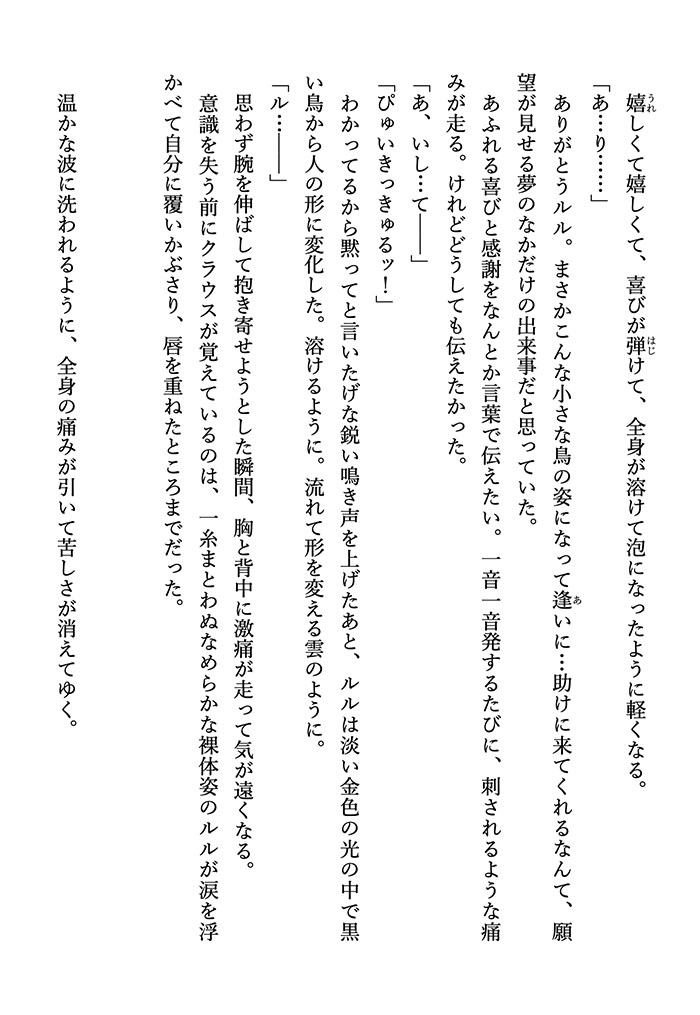 嬉しくて嬉しくて、喜びが弾けて、全身が溶けて泡になったように軽くなる。
「あ…り……」
ありがとうルル。まさかこんな小さな鳥の姿になって逢いに…助けに来てくれるなんて、願
望が見せる夢のなかだけの出来事だと思っていた。
あふれる喜びと感謝をなんとか言葉で伝えたい。一音一音発するたびに、刺されるような痛
みが走る。けれどどうしても伝えたかった。
「あ、いし…て――」
「ぴゅいきっきゅるッ!」
わかってるから黙ってと言いたげな鋭い鳴き声を上げたあと、ルルは淡い金色の光の中で黒
い鳥から人の形に変化した。溶けるように。流れて形を変える雲のように。
「ル…――」
思わず腕を伸ばして抱き寄せようとした瞬間、胸と背中に激痛が走って気が遠くなる。
意識を失う前にクラウスが覚えているのは、一糸まとわぬなめらかな裸体姿のルルが涙を浮
かべて自分に覆いかぶさり、唇を重ねたところまでだった。
温かな波に洗われるように、全身の痛みが引いて苦しさが消えてゆく。